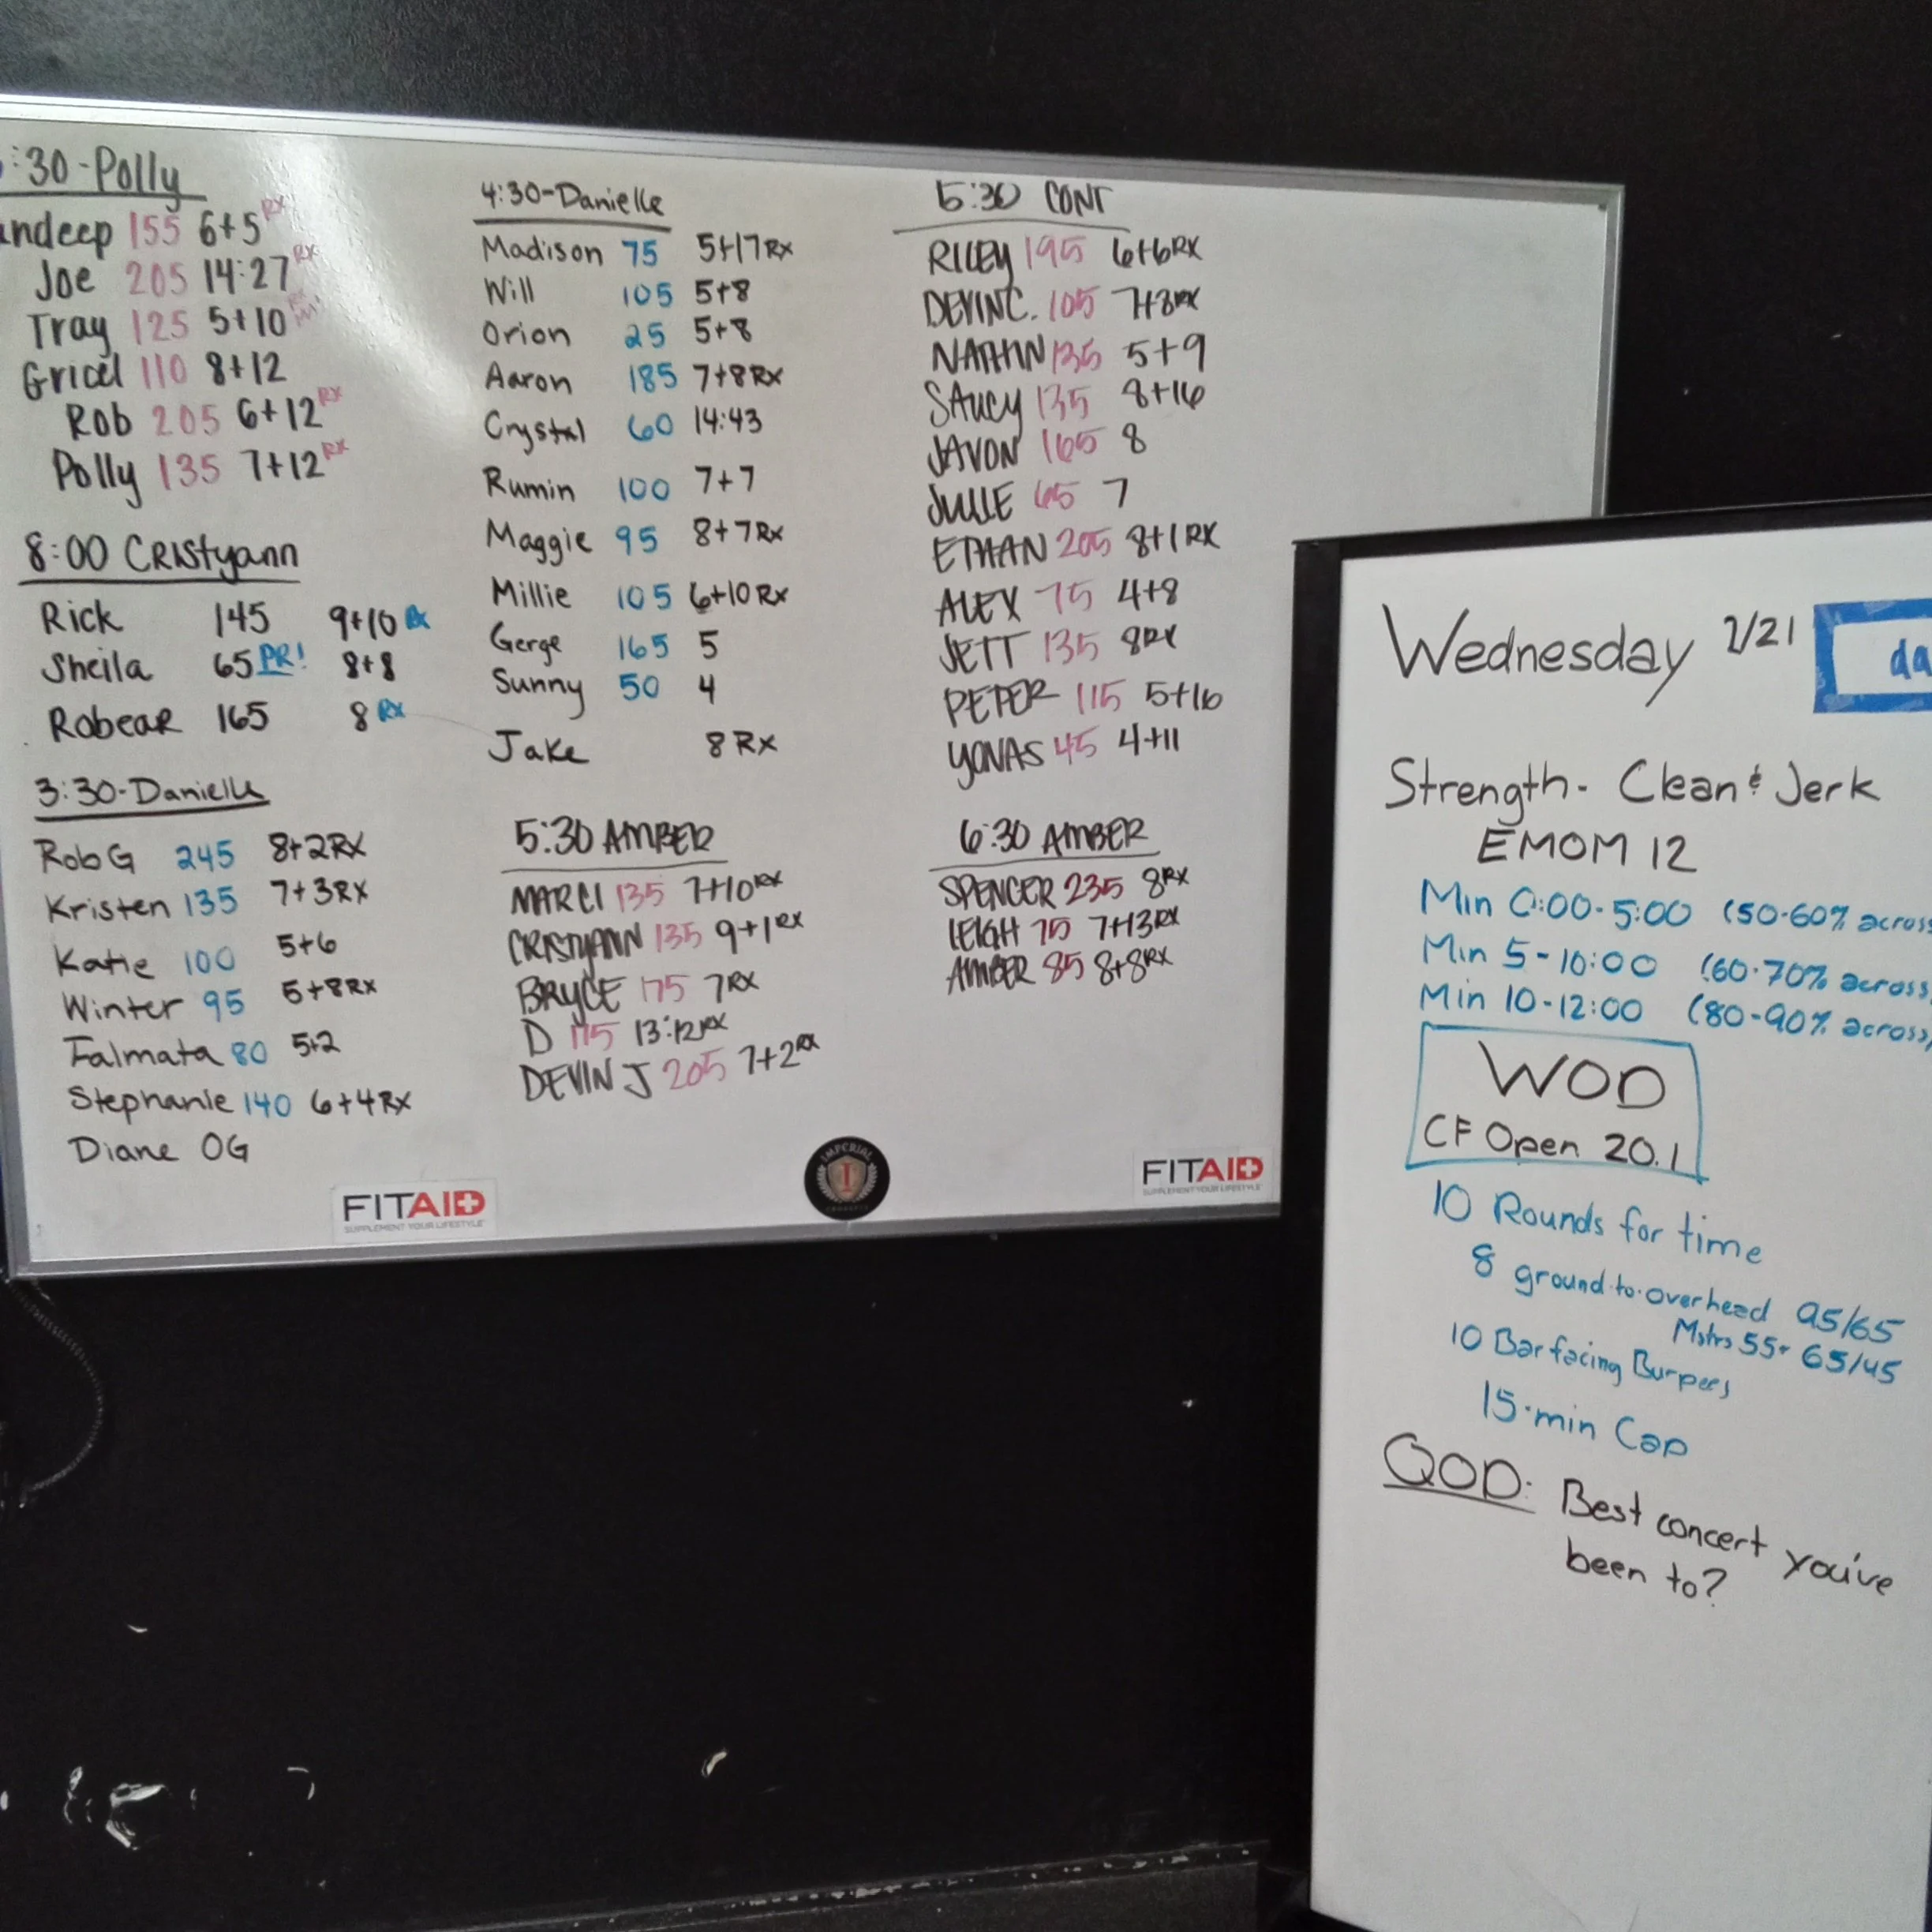 :30-Polly
ndeep 155 6+5 RX
Joe 205 14:27 RX
Tray 125 5+10
Gricel 110 8+12
Rob 205 6+12 RX
Polly 135 7+12 RX
8:00 CRIStyann
Rick 145 9+10 Rx
Sheila 65 PR! 8+8
Robear 165 8 Rx
3:30-Danielle
Rob G 245 8+2 RX
Kristen 135 7+3 RX
Katie 100 5+6
Winter 95 5+8 RX
Falmata 80 5+2
Stephanie 140 6+4 RX
Diane OG
4:30-Danielle
Madison 75 5+17 RX
Will 105 5+8
Orion 25 5+8
Aaron 185 7+8 RX
Crystal 60 14:43
Rumin 100 7+7
Maggie 95 8+7 Rx
Millie 105 6+10 Rx
Gerge 165 5
Sunny 50 4
Jake 8 Rx
5:30 AMBER
MARCI 135 7+10 RX
CRISTYANN 135 9+1 RX
BRYCE 175 7 RX
D 175 13:12 RX
DEVIN J 205 7+2 RX
5:30 CONT
RILEY 195 6+6 RX
DEVIN C. 105 7+3 RX
135 5+9
SAUCY 135 8+16
JAVON 165 8
JULIE 65 7
ETHAN 205 8+1 RX
ALEX 75 4+8
JETT 135 8 RX
PETER 115 5+16
YONAS 45 4+11
6:30 AMBER
SPENCER 235 8 RX
LEIGH 75 7+13 RX
AMBER 85 8+8 RX
FITAID
SUPPLEMENT YOUR LIFESTYLE
IMPERIAL
I
FITAID
SUPPLEMENT YOUR LIFESTYLE
Wednesday 2/21
da
Strength- Clean & Jerk
EMOM 12
Min 0:00-5:00 (50-60% across
Min 5-10:00 (60-70% across,
Min 10-12:00 (80-90% across,
WOD
CF Open 20.1
10 Rounds for time
8 ground-to-overhead 95/65
Mstrs 55+ 65/45
10 Bar facing Burpees
15-min Cap
QOD: Best concert you've
been to?